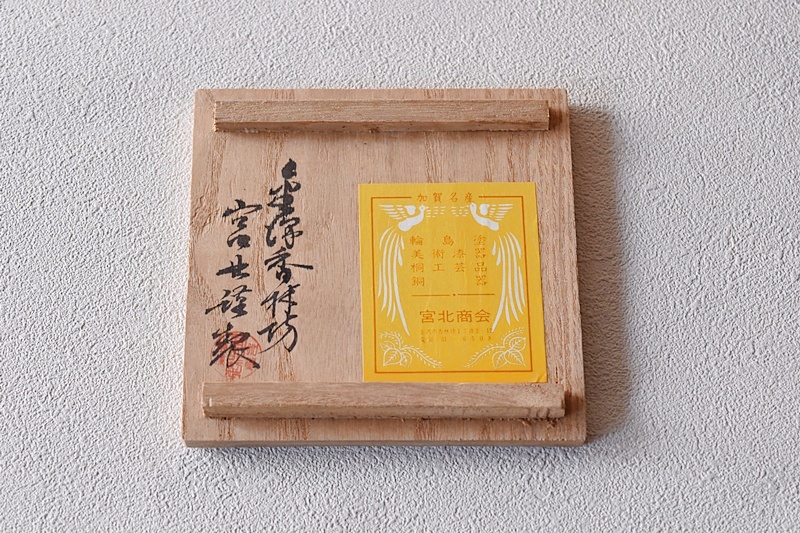 金澤香林坊
宮 謹製
加賀名産
輪島塗
美術漆器
桐工芸品
銅器
宮北商会